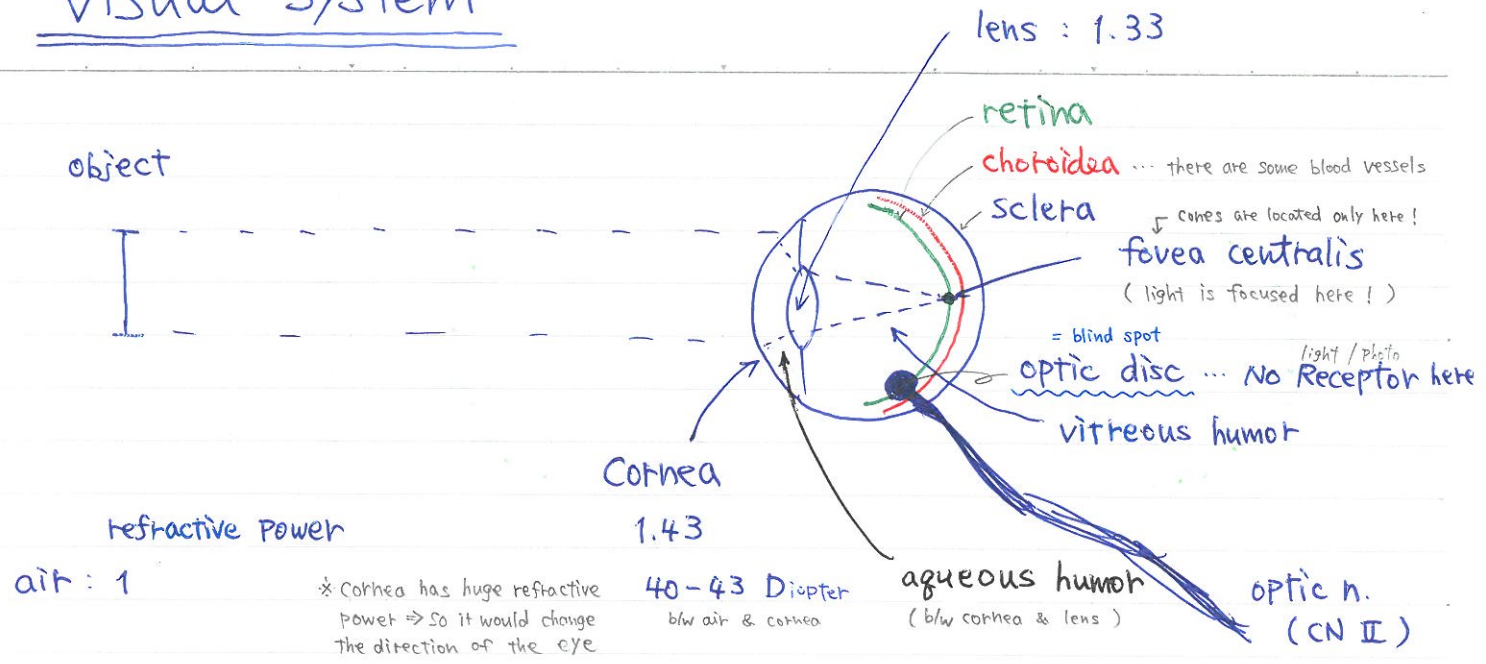 visual system
lens : 1.33
retina
object
choroidea ... there are some blood vessels
sclera
cones are located only here !
fovea centralis
( light is focused here ! )
= blind spot
light / photo
optic disc ... No Receptor here
vitreous humor
Cornea
refractive power
1.43
air : 1
※ Cornea has huge refractive
power ⇒ So it would change
the direction of the eye
40-43 Diopter
b/w air & cornea
aqueous humor
( b/w cornea & lens )
optic n.
( CN II )